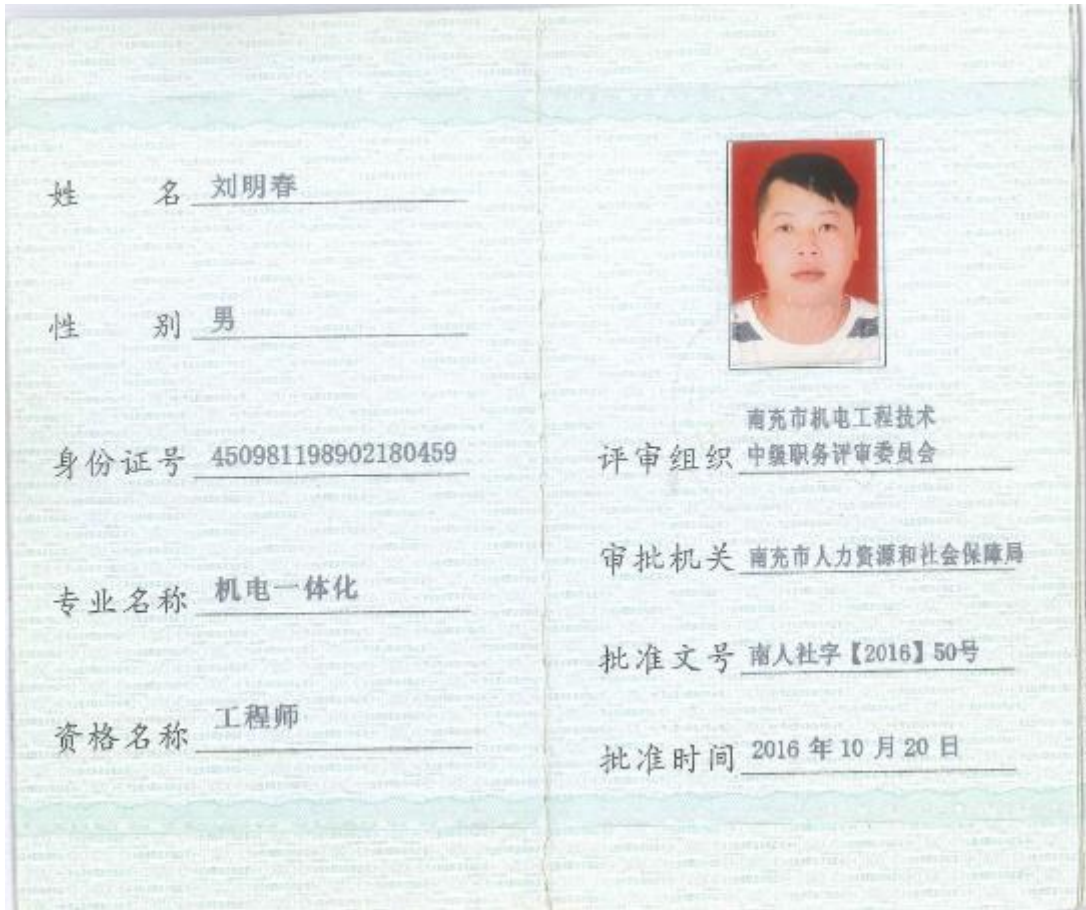 姓名 刘明春
性别 男
身份证号 450981198902180459
专业名称 机电一体化
资格名称 工程师
南充市机电工程技术
评审组织 中级职务评审委员会
审批机关 南充市人力资源和社会保障局
批准文号 南人社字【2016】50号
批准时间 2016 年 10 月 20 日